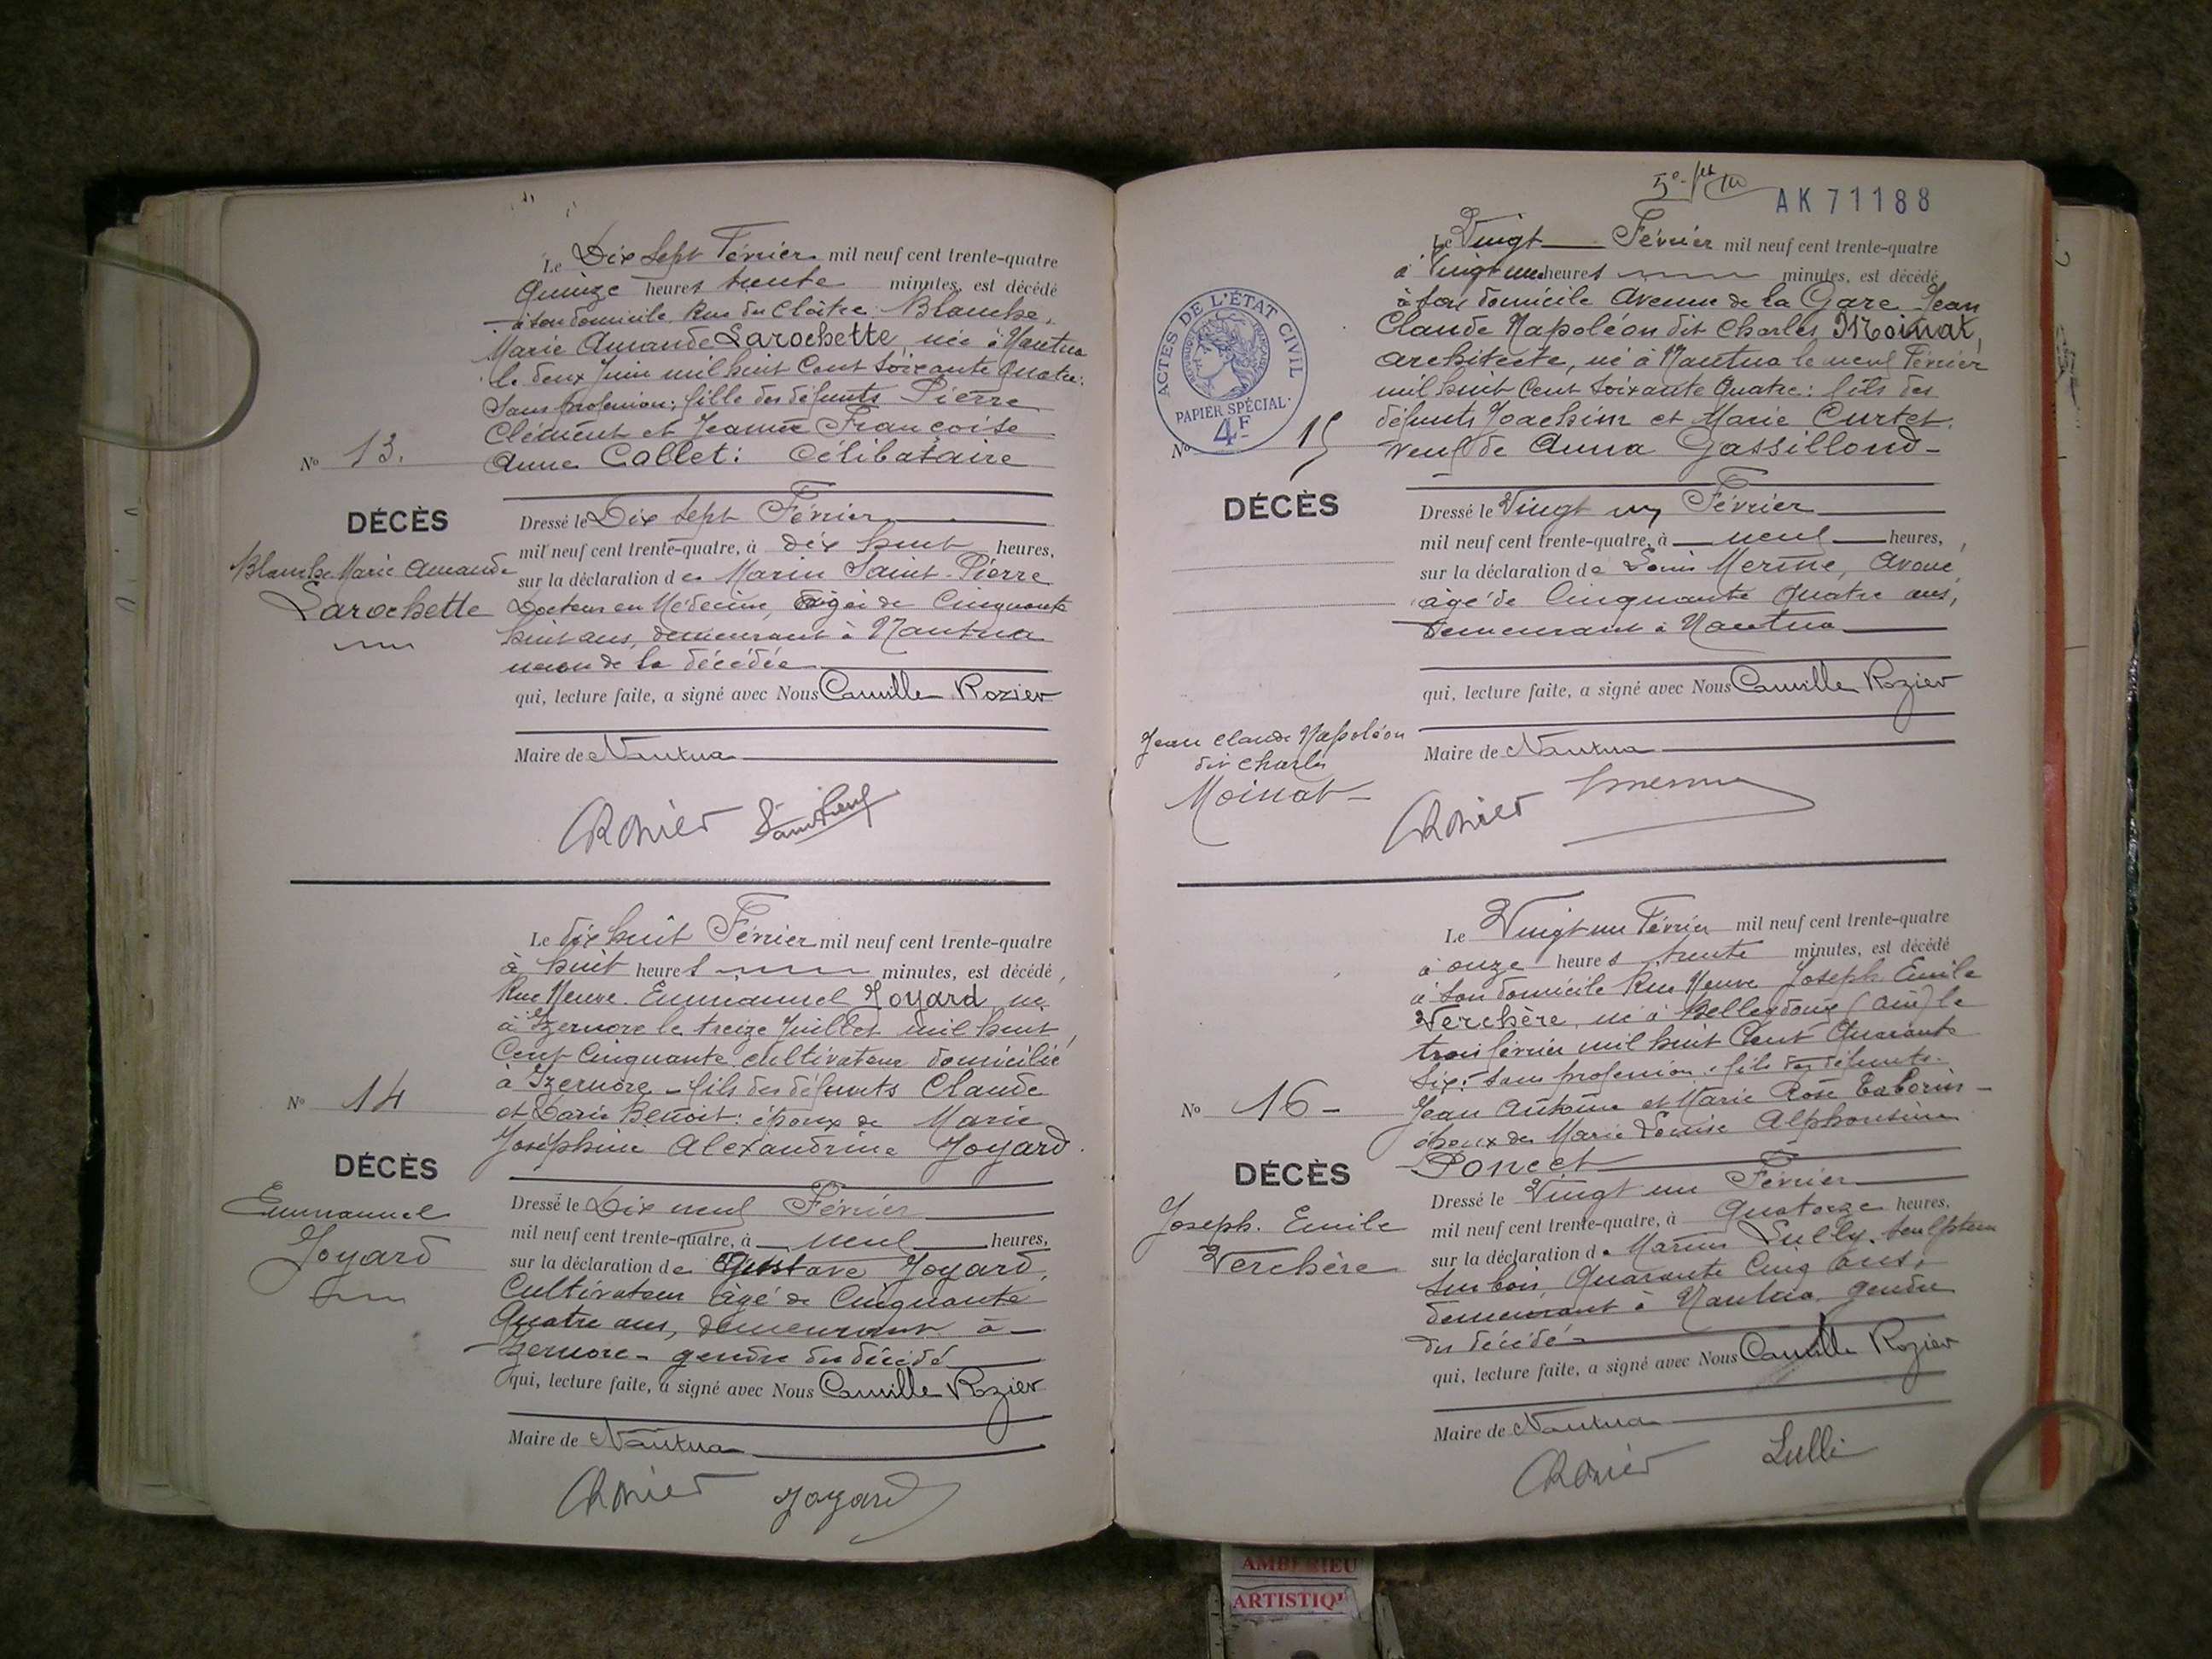 Le Dix sept Février mil neuf cent trente-quatre
Quinze heures trente minutes, est décédé
à son domicile Rue du Cloître Blanche,
Marie Amande Larochette, née à Nantua
le deux Juin mil huit Cent Soixante Quatre:
Sans profession; fille des défunts Pierre
Clément et Jeanne Françoise
Anne Collet: Célibataire
No 13.
DÉCÈS
Blanche Marie Amande
Larochette
Dressé le Dix sept Février
mil neuf cent trente-quatre, à dix huit heures,
sur la déclaration de Marin Saint-Pierre
Docteur en Médecine, âgé de Cinquante
huit ans, demeurant à Nantua
de la décédée
qui, lecture faite, a signé avec Nous Camille Rozier
Maire de Nantua
CRozier Saint Pierre
Le dix huit Février mil neuf cent trente-quatre
à huit heures minutes, est décédé,
Rue Neuve. Emmanuel Joyard, né
à Izernore le treize Juillet mil huit
Cent Cinquante cultivateur domicilié
à Izernore - fils des défunts Claude
et Marie Benoit: époux de Marie
Joséphine Alexandrine Joyard.
No 14
DÉCÈS
Emmanuel
Joyard
Dressé le Dix neuf Février
mil neuf cent trente-quatre, à neuf heures,
sur la déclaration de Gustave Joyard,
Cultivateur âgé de Cinquante
Quatre ans, demeurant à
Izernore - gendre du décédé
qui, lecture faite, a signé avec Nous Camille Rozier
Maire de Nantua
CRozier Joyard
5e
AK 71188
Le Vingt Février mil neuf cent trente-quatre
à Vingt une heures minutes, est décédé
à son domicile Avenue de la Gare Jean
Claude Napoléon dit Charles Moinat,
architecte, né à Nantua le neuf Février
mil huit Cent Soixante Quatre: fils des
défunts Joachim et Marie Curtet.
veuf de Anna Gassilloud -
ACTES DE L'ÉTAT CIVIL
RÉPUBLIQUE FRANÇAISE
PAPIER SPÉCIAL
4F
No 15
DÉCÈS
Jean Claude Napoléon
dit Charles
Moinat -
Dressé le Vingt un Février
mil neuf cent trente-quatre, à neuf heures,
sur la déclaration de Louis Merme, Avoué,
âgé de Cinquante Quatre ans,
demeurant à Nantua
qui, lecture faite, a signé avec Nous Camille Rozier
Maire de Nantua
CRozier Merme
Le Vingt un Février mil neuf cent trente-quatre
à onze heures trente minutes, est décédé
à son domicile Rue Neuve Joseph Emile
Verchère, né à Belleydoux (Ain) le
trois février mil huit Cent Quarante
Six: sans profession. fils des défunts
Jean Antoine et Marie Rose Taborin -
époux de Marie Louise Alphonsine
Poncet
No 16 -
DÉCÈS
Joseph. Emile
Verchère
Dressé le Vingt un Février
mil neuf cent trente-quatre, à Quatorze heures,
sur la déclaration de Marius Lully, Sculpteur
sur bois, Quarante Cinq ans,
demeurant à Nantua, gendre
du décédé
qui, lecture faite, a signé avec Nous Camille Rozier
Maire de Nantua
CRozier Lulli
AMBERIEU
ARTISTIQ